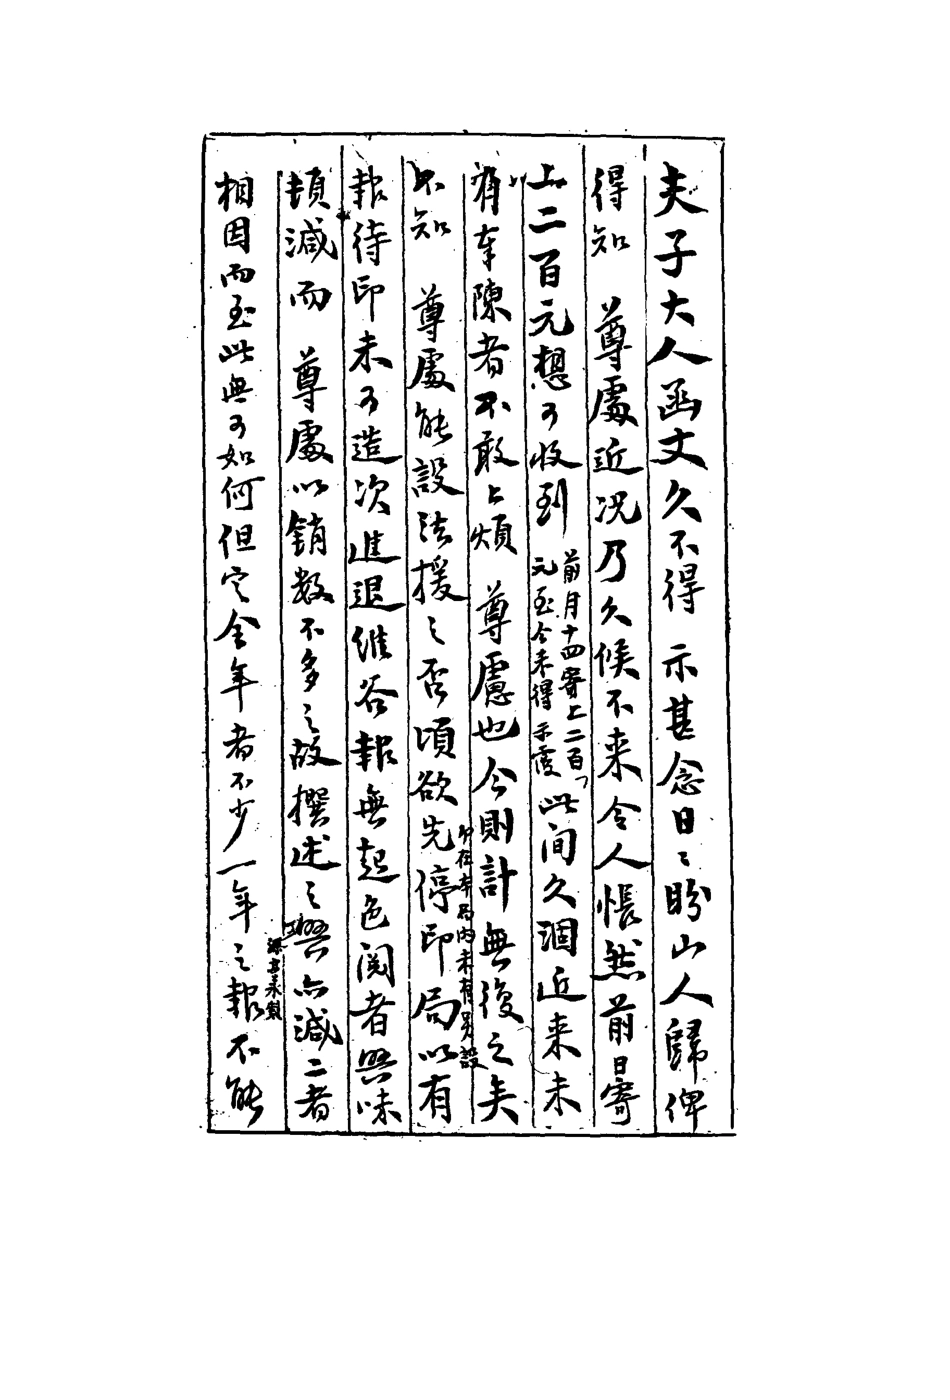 夫子大人函丈久不得 示甚念日〻盼山人歸俾
得知 尊處近况乃久候不来令人悵然前日寄
上二百元想可收到
前月十四寄上二百
元至今未得示覆
此间久涸近来未
有以奉陳者不敢上煩 尊慮也今則計無復之矣
不知 尊處能設法援之否頃欲先停印局以有
印在本局内未有另設
報待印未可造次進退維谷報無起色閲者興味
頓減而 尊處以銷数不多之故撰述之興亦減二者
相因而至此無可如何但定全年者不少一年之報不能